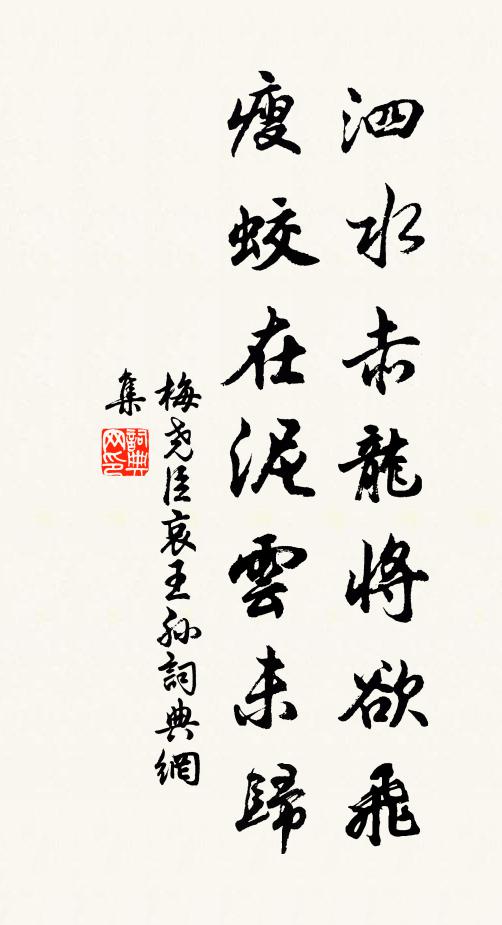 泗水赤龍將欲飛
瘦蛟在泥雲未歸
梅堯臣哀王孫詞典網
集
詞典
网印